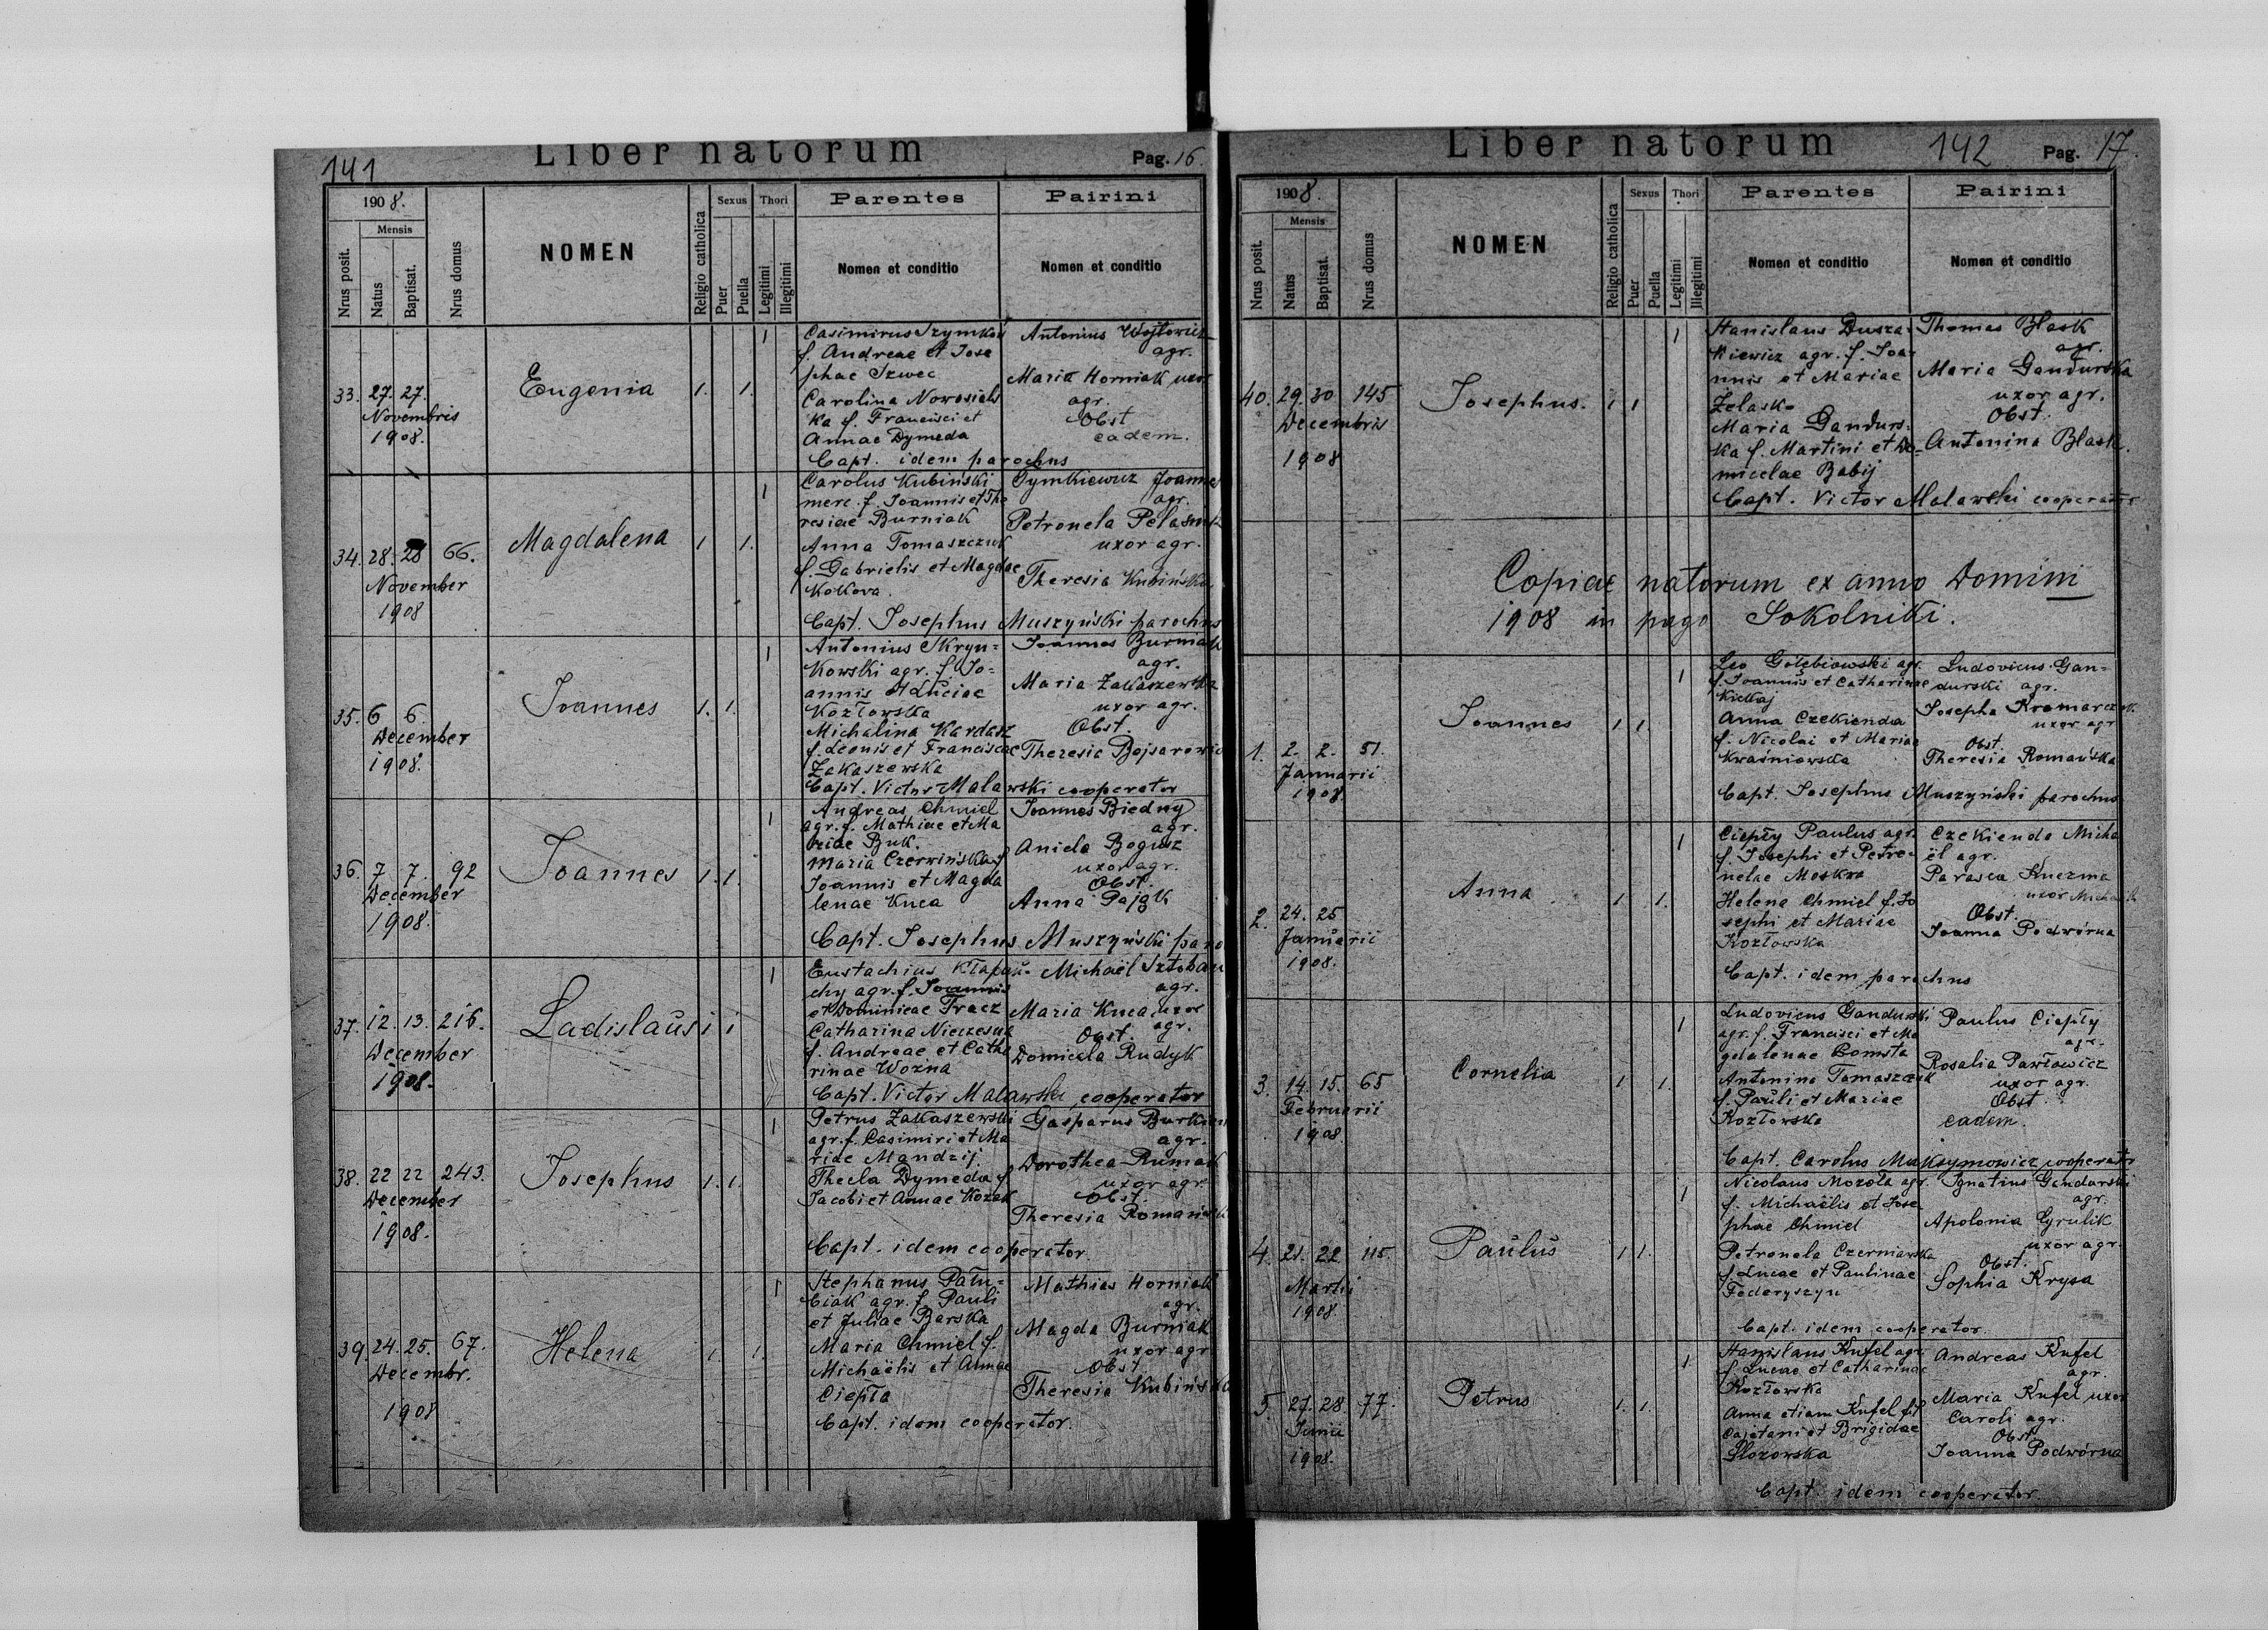 141
Liber natorum
Pag. 16.
1908.
Nrus posit.
Mensis
Natus
Baptisat.
Nrus domus
NOMEN
Religio catholica
Sexus
Puer
Puella
Thori
Legitimi
Illegitimi
Parentes
Nomen et conditio
Pairini
Nomen et conditio
33. 27. 27.
Novembris
1908.
Eugenia
1. 1. 1
Casimirus Szymków
f. Andreae et Jose
phae Szwec
Carolina Nowosiels
ka f. Francisci et
Annae Dymeda
Bapt. idem parochus
Antonius Wojtowicz
agr.
Maria Horniak uxor
agr.
Obst
eadem.
34. 28. 28 66.
November
1908
Magdalena
1 1. 1
Carolus Kubiński
merc. f. Joannis et The
resiae Burniak
Anna Tomaszczuk
f. Gabrielis et Magdae
Kokova.
Bapt. Josephus Muszyński parochus
Tymkiewicz Joannes
agr.
Petronela
uxor agr.
Theresia Kubińska
35. 6 6.
December
1908.
Joannes
1. 1. 1
Antonius Skryn=
kowski agr. f. Jo=
annis et Luciae
Kozłowska
Michalina Kardasz
f. Leonis et Franciscae
Zakaszewska
Bapt. Victor Malawski cooperator
Joannes Burniak
agr.
Maria Zakaszewska
uxor agr.
Obst.
Theresia
36. 7 7. 92
December
1908.
Joannes
1. 1. 1
Andreas Chmiel
agr. f. Mathiae et Ma
riae Buk.
Maria Czerwińska f
Joannis et Magda
lenae Kuca
Bapt. Josephus Muszyński paro
Joannes Biedny
agr.
Aniela Bogusz
uxor agr.
Obst.
Anna Pająk
37. 12. 13. 216.
December
1908.
Ladislaus
1 1 1
Eustachius Kłapau=
chy agr. f. Joannis
et Dominicae Tracz
Catharina Nieczesna
f. Andreae et Catha
rinae Wozna
Bapt. Victor Malawski cooperator
Michaël Sztoban
agr.
Maria Kuca uxor
agr.
Obst.
Domicela Rudyk
38. 22 22 243.
December
1908.
Josephus
1. 1. 1
Petrus Zakaszewski
agr. f. Casimiri et Ma
riae Mandzij.
Thecla Dymeda f
Jacobi et Annae Kozak
Bapt. idem cooperator.
Gasparus
agr.
Dorothea Rumak
uxor agr.
Obst.
Theresia Romańska
39. 24. 25. 67.
Decembr.
1908
Helena
1. 1. 1
Stephanus Patu=
ciak agr. f. Pauli
et Juliae Barska
Maria Chmiel f.
Michaëlis et Annae
Ciepła
Bapt. idem cooperator.
Mathias Horniak
agr.
Magda Burniak
uxor agr
Obst.
Theresia Kubińska
Liber natorum
142
Pag. 17.
1908.
Nrus posit.
Mensis
Natus
Baptisat.
Nrus domus
NOMEN
Religio catholica
Sexus
Puer
Puella
Thori
Legitimi
Illegitimi
Parentes
Nomen et conditio
Pairini
Nomen et conditio
40. 29. 30 145
Decembris
1908
Josephus.
1 1 1
Stanislaus Dusza=
kiewicz agr. f. Joa=
nnis et Mariae
Żelasko
Maria Gandurs=
ka f. Martini et Do=
micelae Babij
Bapt. Victor Malawski cooperator
Thomas Błask
agr.
Maria Gandurska
uxor agr.
Obst.
Antonina Błask.
Copiae natorum ex anno Domini
1908 in pago Sokolniki.
1. 2. 2. 51.
Januarii
1908.
Joannes
1 1. 1
Leo Gołębiowski agr.
f. Joannis et Catharinae
Kiełkaj
Anna Czekienda
f. Nicolai et Mariae
Kwaśniowska
Bapt. Josephus Muszyński parochus
Ludovicus Gan=
durski agr.
Josepha Kramarczuk
uxor agr
Obst.
Theresia Romańska
2. 24. 25
Januarii
1908.
Anna
1 1. 1
Ciepły Paulus agr.
f. Josephi et Petro=
nelae Moskwa
Helena Chmiel f. Jo
sephi et Mariae
Kozłowska
Bapt. idem parochus
Czekienda Micha
ël agr.
Parasca Kuczma
uxor
Obst.
Joanna Podwórna
3. 14. 15. 65
Februarii
1908.
Cornelia
1 1. 1
Ludovicus Gandurski
agr. f. Francisci et Ma
gdalenae Bomsta
Antonina Tomaszczuk
f. Pauli et Mariae
Kozłowska
Bapt. Carolus Maksymowicz cooperator
Paulus Ciepły
agr.
Rosalia Pawłowicz
uxor agr.
Obst.
eadem.
4. 21. 22 115.
Martii
1908.
Paulus
1 1. 1
Nicolaus Mozoła agr.
f. Michaëlis et Jose
phae Chmiel
Petronela Czerniawska
f. Lucae et Paulinae
Federyszyn
Bapt. idem cooperator.
Ignatius Gandurski
agr.
Apolonia Cyrulik
uxor agr.
Obst.
Sophia Krysa
5. 27. 28. 77.
Junii
1908.
Petrus
1. 1. 1
Stanislaus Kufel agr.
f. Lucae et Catharinae
Kozłowska
Anna etiam Kufel fil
Cajetani et Brigidae
Slozowska
Bapt. idem cooperator.
Andreas Kufel
agr.
Maria Kufel uxor
Caroli agr.
Obst.
Joanna Podwórna